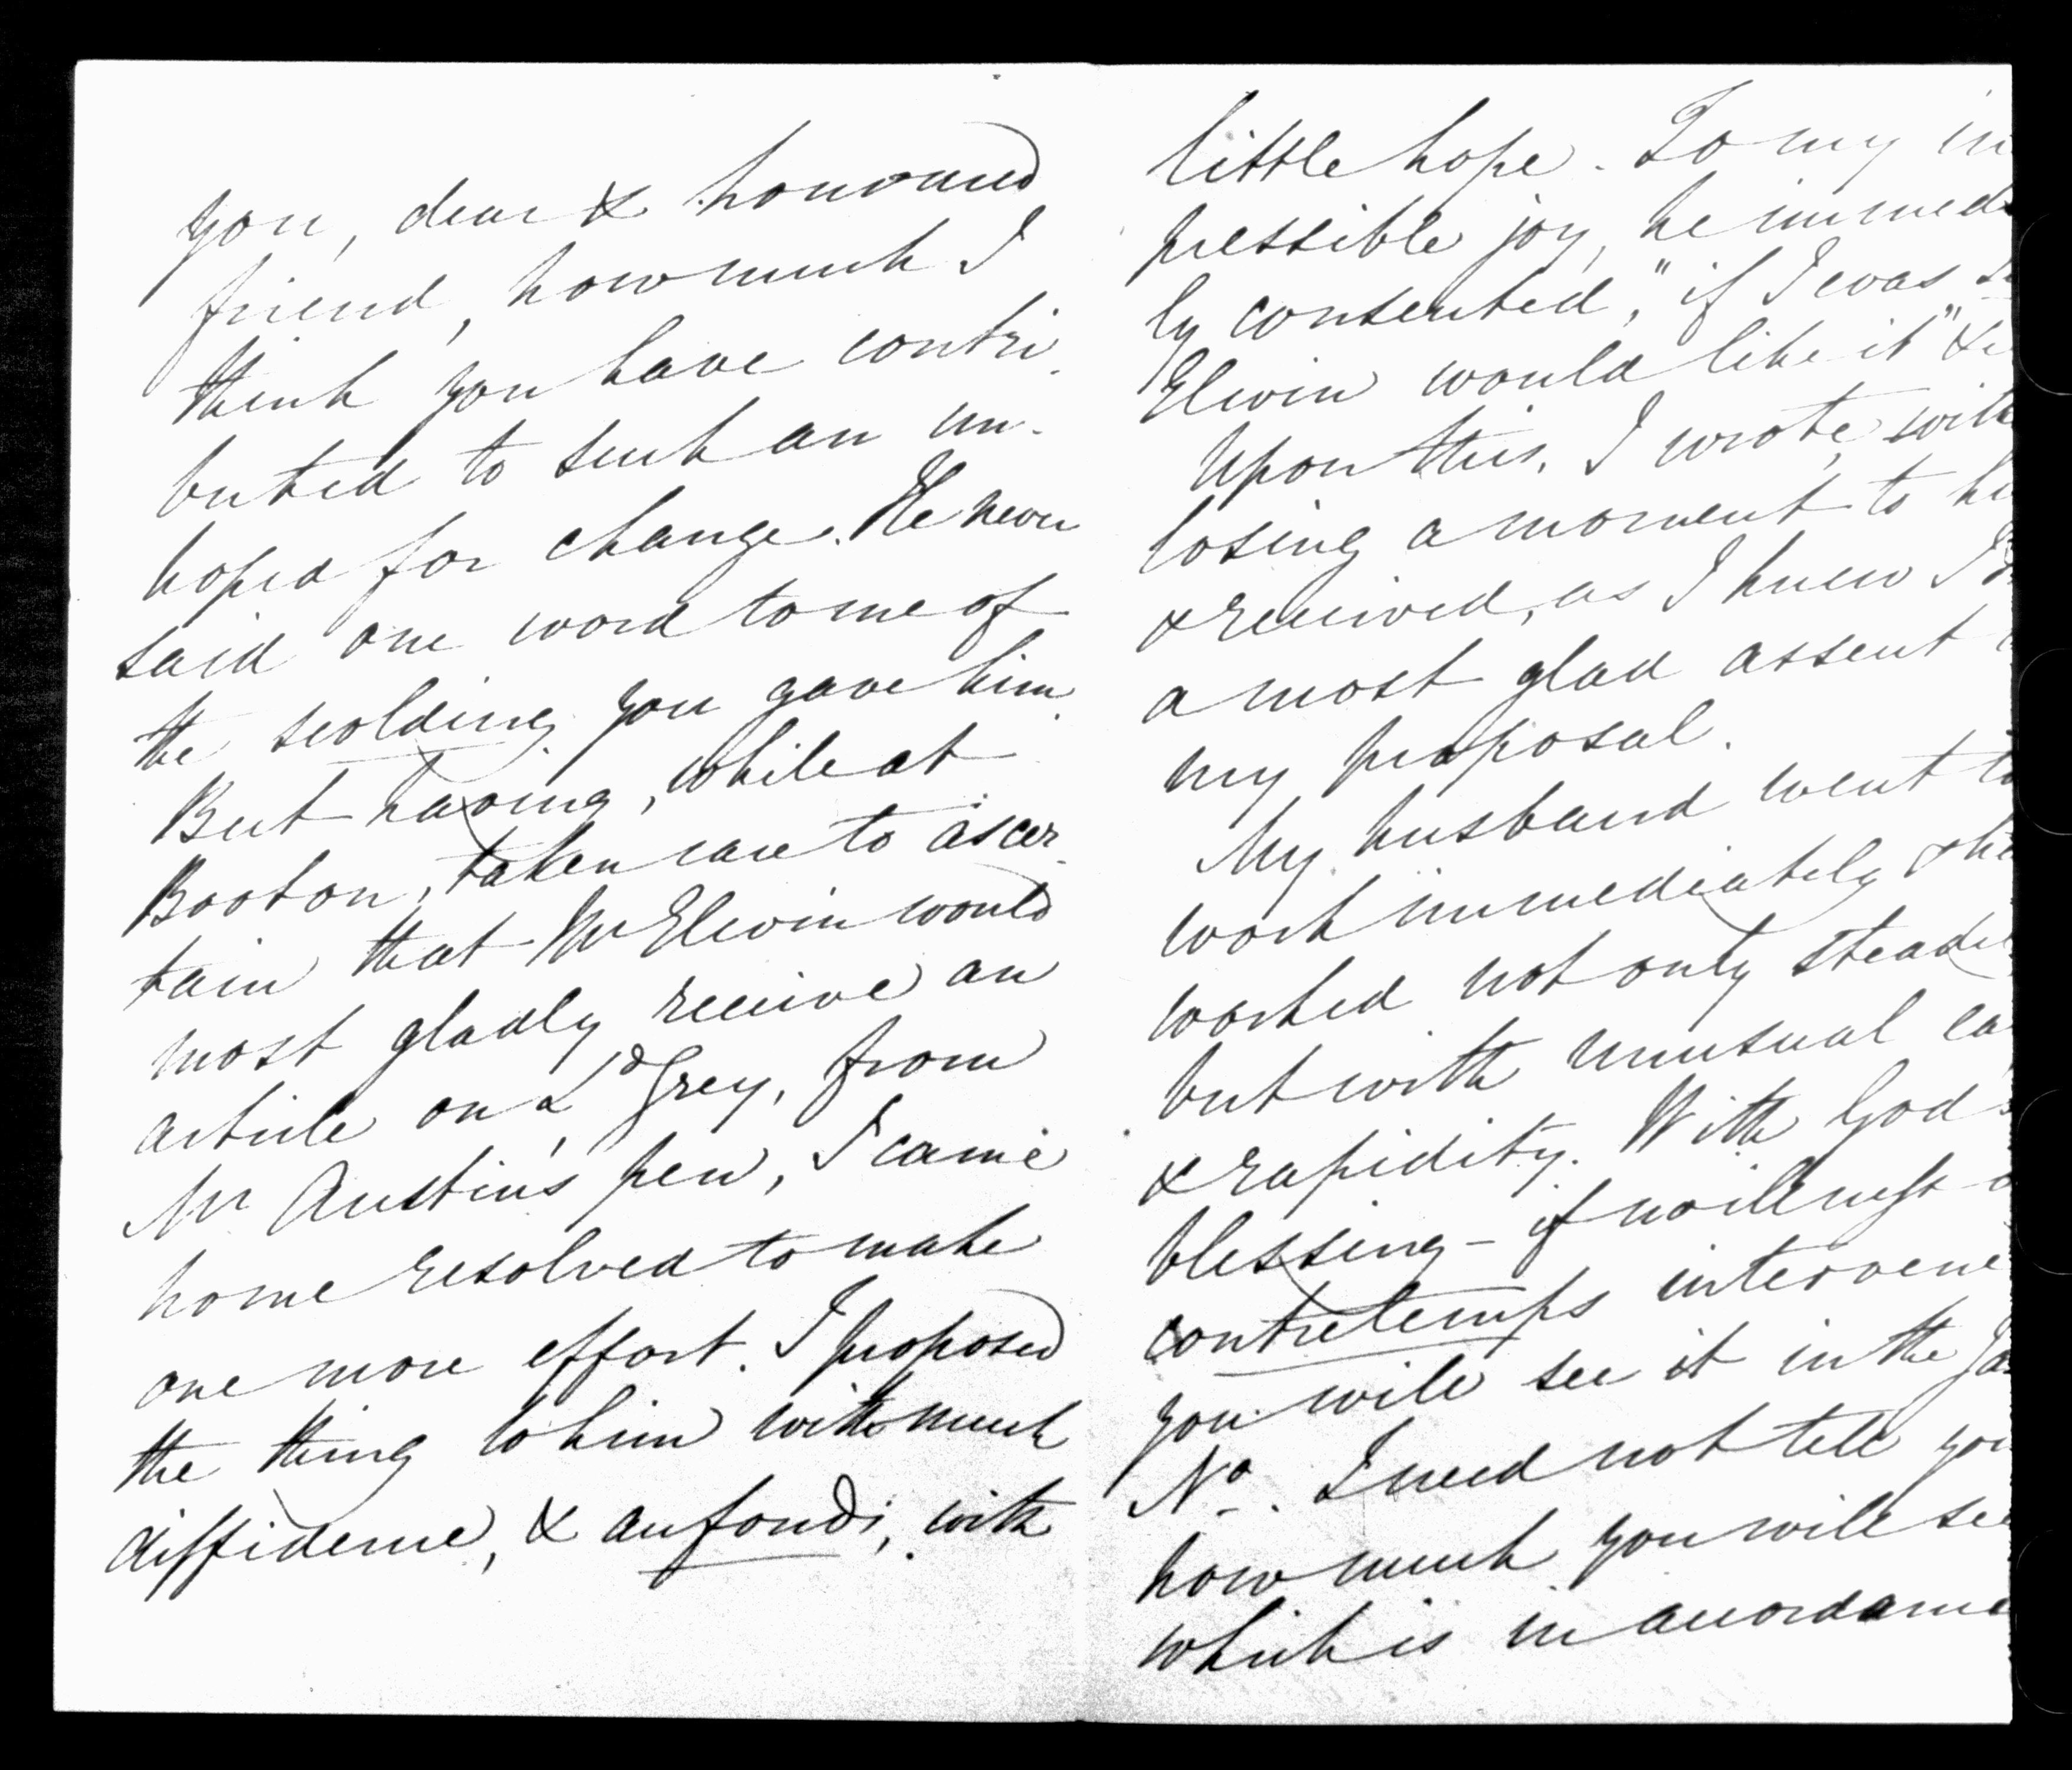 you, dear & honoured
friend, how much I
think you have contri-
buted to such an un-
hoped for change. He never
said one word to me of
the scolding you gave him.
But having, while at
Booton, taken care to ascer-
tain that Mr Elwin would
most gladly receive an
article on Ld Grey, from
Mr Austin's pen, I came
home resolved to make
one more effort. I proposed
the thing to him with much
diffidence, & au fond, with
little hope. To my in
pressible joy, he immed
ly consented, "if I was su
Elwin would like it" &
Upon this, I wrote, with
losing a moment to hi
& received, as I knew I
a most glad assent
my proposal.
My husband went to
work immediately & ha
worked not only steadi
but with unusual ea
& rapidity. With God
blessing – if no illness
contretemps intervene
you will see it in the Ja
No. I need not tell you
how much you will see
which is in accordance